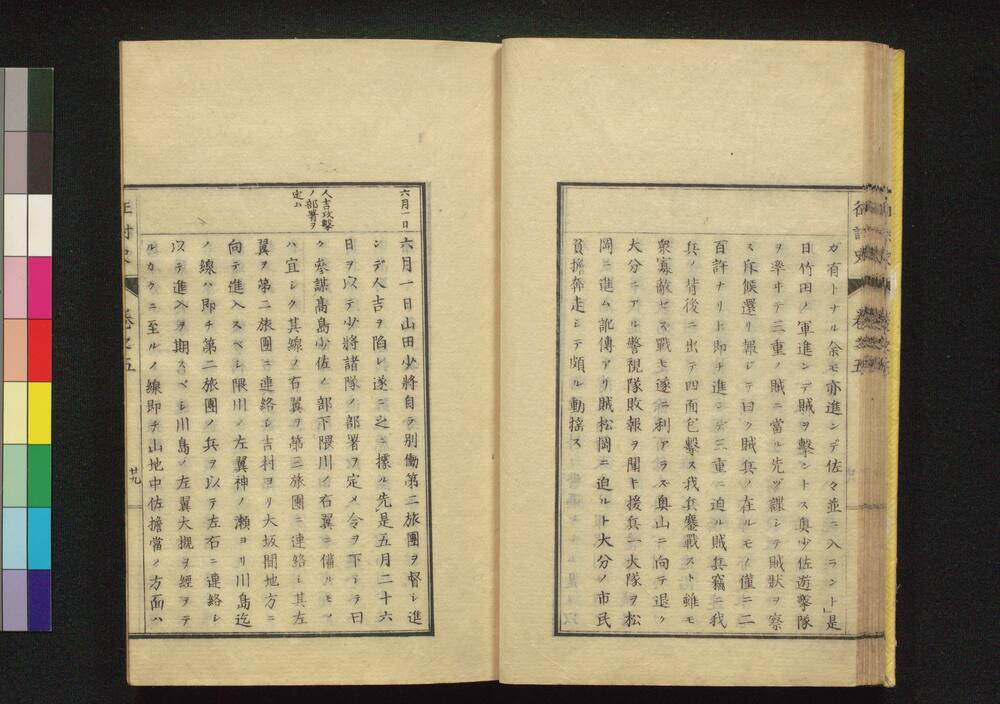 カ有トナル余モ亦進ンデ佐々並ニ入ラント」是
日竹田ノ軍進ンデ賊ヲ擊ントス奥少佐遊擊隊
ヲ率ヰテ三重ノ賊ニ當ル先ヅ諜シテ賊狀ヲ察
ス斥候還リ報ジテ曰ク賊兵ノ在ルモノ僅ニ二
百許ナリト即チ進ンデ三重ニ迫ル賊兵竊ニ我
兵ノ背後ニ出テ四面包擊ス我兵鏖戰スト雖モ
衆寡敵セズ戰モ遂ニ利アラズ奥山ニ向テ退ク
大分ニアル警視隊敗報ヲ聞キ援兵一大隊ヲ松
岡ニ進ム訛傳アリ賊松岡ニ迫ルト大分ノ市民
負擔奔走シテ頗ル動揺ス
六月一日
六月一日山田少將自ラ別働第二旅團ヲ督シ進
ンデ人吉ヲ陷レ遂ニ之ニ據ル先是五月二十六
日ヲ以テ少將諸隊ノ部署ヲ定メ令ヲ下シテ曰
人吉攻擊
ノ部署ヲ
定ム
ク參謀高島少佐ノ部下隈川ノ右翼ニ備ルモノ
ハ宜シク其線ノ右翼ヲ第三旅團ニ連絡シ其左
翼ヲ第二旅團ニ連絡シ吉村ヨリ大坂間地方ニ
向テ進入スベシ隈川ノ左翼神ノ瀬ヨリ川島迄
ノ線ハ即チ第二旅團ノ兵ヲ以テ左右ニ連絡シ
以テ進入ヲ期スベシ川島ノ左翼大槻ヲ經ヲテ
ルカクニ至ルノ線即チ山地中佐擔當ノ方面ハ
征討史
卷之五
廿九